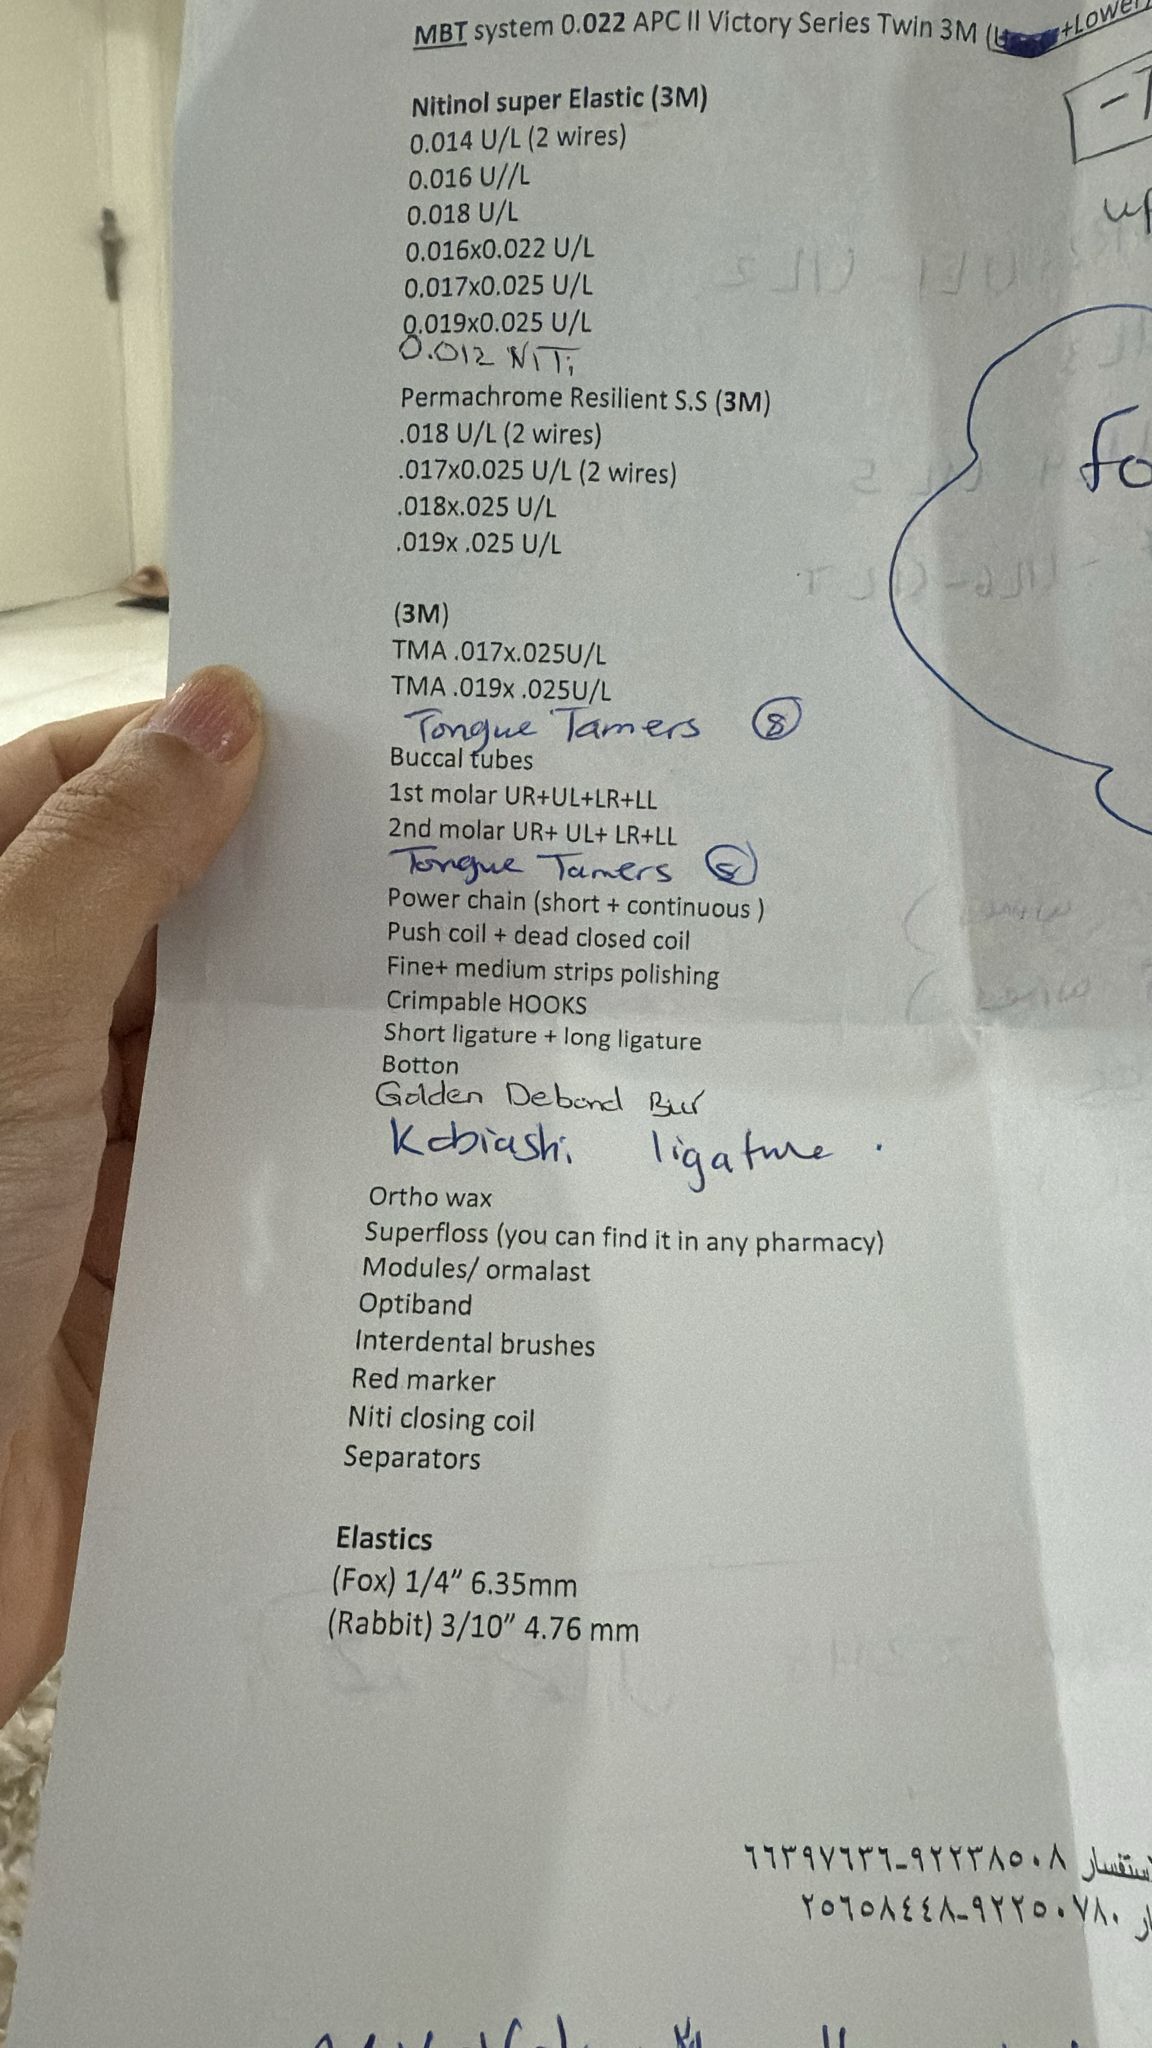 MBT system 0.022 APC II Victory Series Twin 3M ( +Lower)
Nitinol super Elastic (3M)
0.014 U/L (2 wires)
0.016 U//L
0.018 U/L
0.016x0.022 U/L
0.017x0.025 U/L
0.019x0.025 U/L
0.012 NiTi
Permachrome Resilient S.S (3M)
.018 U/L (2 wires)
.017x0.025 U/L (2 wires)
.018x.025 U/L
.019x .025 U/L
(3M)
TMA .017x.025U/L
TMA .019x .025U/L
Tongue Tamers 8
Buccal tubes
1st molar UR+UL+LR+LL
2nd molar UR+ UL+ LR+LL
Tongue Tamers
Power chain (short + continuous )
Push coil + dead closed coil
Fine+ medium strips polishing
Crimpable HOOKS
Short ligature + long ligature
Botton
Golden Debond Bur
Kobiashi ligature .
Ortho wax
Superfloss (you can find it in any pharmacy)
Modules/ ormalast
Optiband
Interdental brushes
Red marker
Niti closing coil
Separators
Elastics
(Fox) 1/4” 6.35mm
(Rabbit) 3/10” 4.76 mm
٦٦٣٩٧٦٣٦-٩٢٢٣٨٥٠٨
٢٥٦٥٨٤٤٨-٩٢٢٥٠٧٨٠